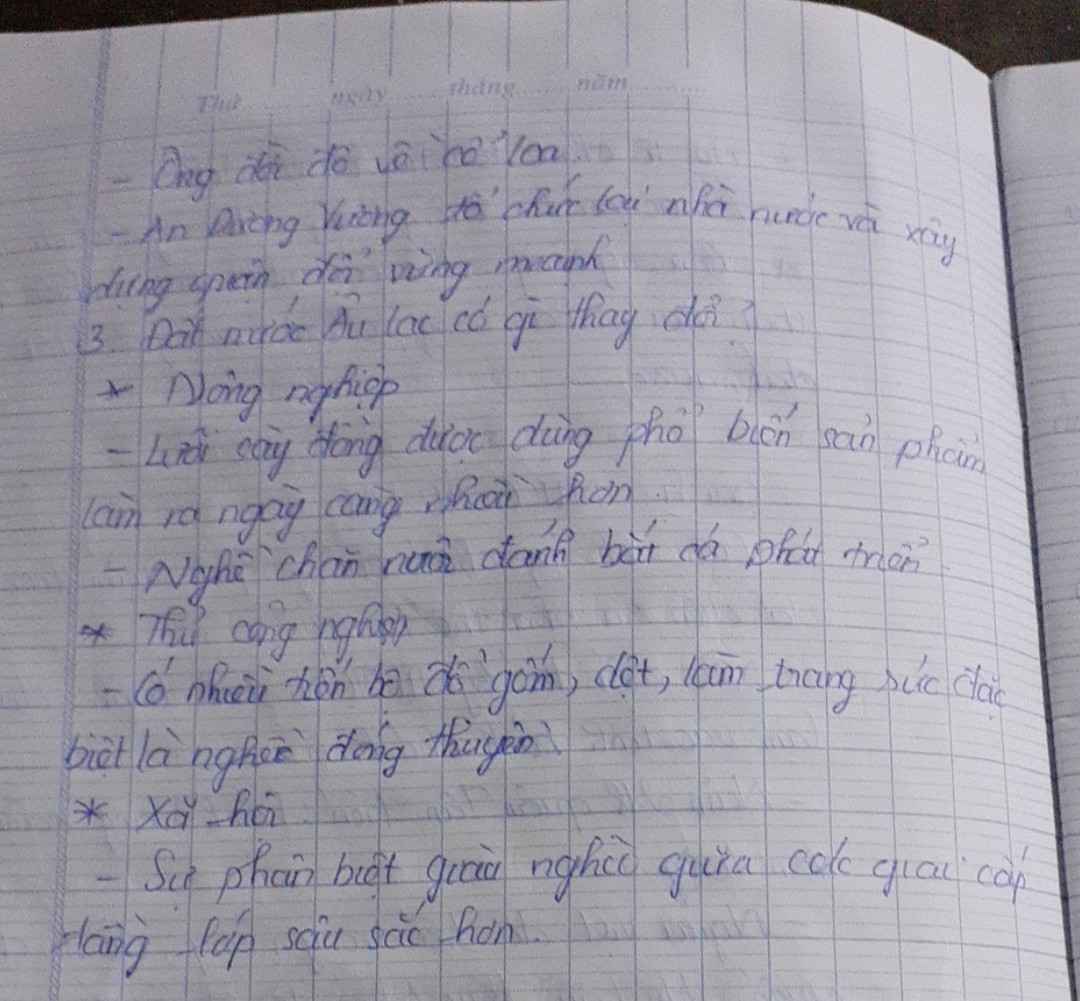 Thứ ngày tháng năm
- Ông dời đô về cổ loa
- An Dương Vương tổ chức lại nhà nước và xây
dựng quân đội vững mạnh
3. Đất nước Âu lạc có gì thay đổi ?
* Nông nghiệp
- Lưỡi cày đồng được dùng phổ biến sản phẩm
làm ra ngày càng nhiều hơn
- Nghề chăn nuôi đánh bắt cá phát triển
* Thủ công nghiệp
- Có nhiều tiến bộ đồ gốm, dệt, làm trang sức đặc
biệt là nghề đóng thuyền
* Xã hội
- Sự phân biệt giàu nghèo giữa các giai cấp
tầng lớp sâu sắc hơn.